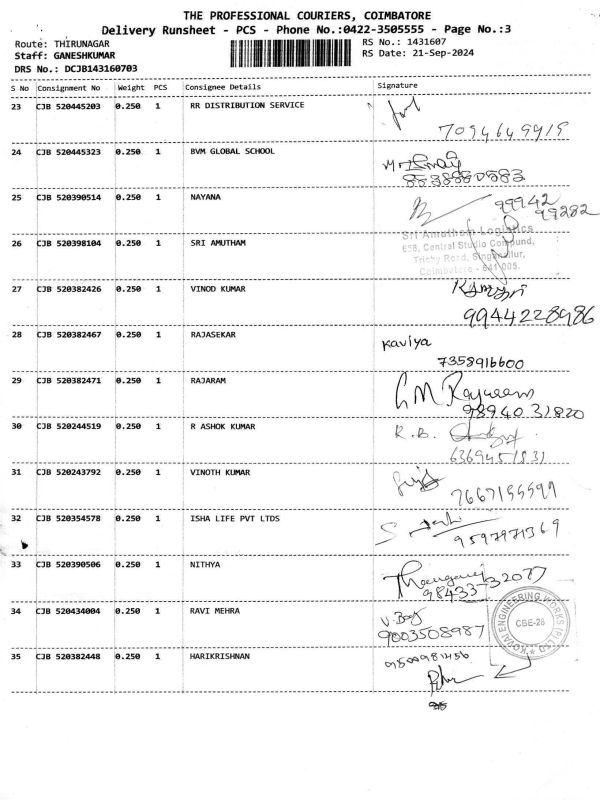 THE PROFESSIONAL COURIERS, COIMBATORE
Delivery Runsheet - PCS - Phone No.:0422-3505555 - Page No.:3
Route: THIRUNAGAR
RS No.: 1431607
Staff: GANESHKUMAR
RS Date: 21-Sep-2024
DRS No.: DCJB143160703
S No Consignment No Weight PCS Consignee Details Signature
23 CJB 520445203 0.250 1 RR DISTRIBUTION SERVICE
7094649919
24 CJB 520445323 0.250 1 BVM GLOBAL SCHOOL
25 CJB 520390514 0.250 1 NAYANA
99942
99282
26 CJB 520398104 0.250 1 SRI AMUTHAM
Sri Amutham Logistics
658, Central Studio Compound,
Trichy Road, Singanallur,
Coimbatore - 641 005.
27 CJB 520382426 0.250 1 VINOD KUMAR
9944228986
28 CJB 520382467 0.250 1 RAJASEKAR
Kaviya
7358916600
29 CJB 520382471 0.250 1 RAJARAM
G M Rajaram
98940 31820
30 CJB 520244519 0.250 1 R ASHOK KUMAR
R.B.
6369451831
31 CJB 520243792 0.250 1 VINOTH KUMAR
32 CJB 520354578 0.250 1 ISHA LIFE PVT LTDS
9597971369
33 CJB 520390506 0.250 1 NITHYA
98433-32077
34 CJB 520434004 0.250 1 RAVI MEHRA
9003508987
KOVAI ENGINEERING WORKS (P) LTD
CBE-28
35 CJB 520382448 0.250 1 HARIKRISHNAN
9500981456